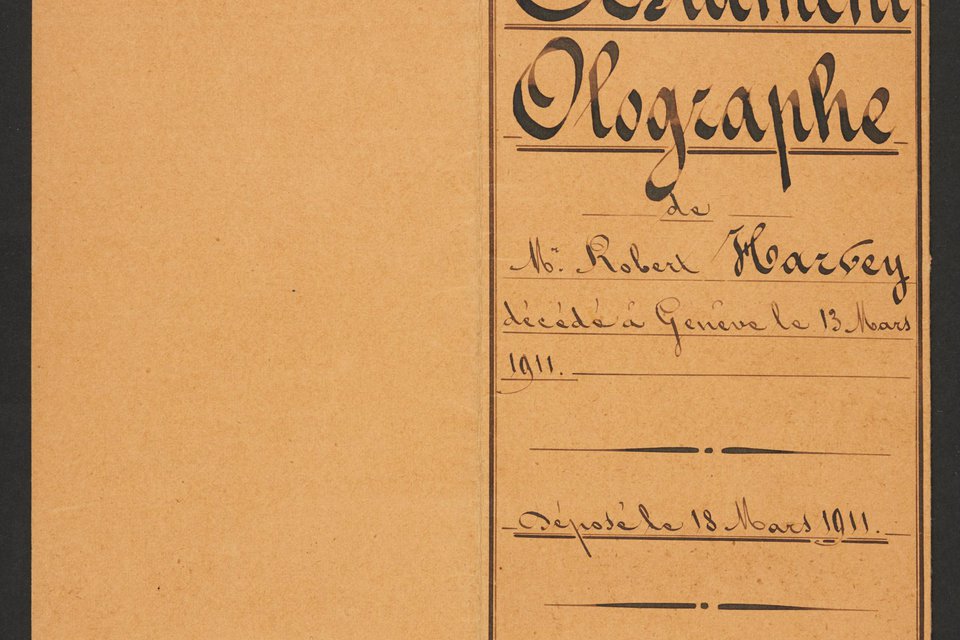 Testament
Olographe
de
Mr. Robert Harvey
décédé à Genève le 13 Mars
1911.
Déposé le 18 Mars 1911.